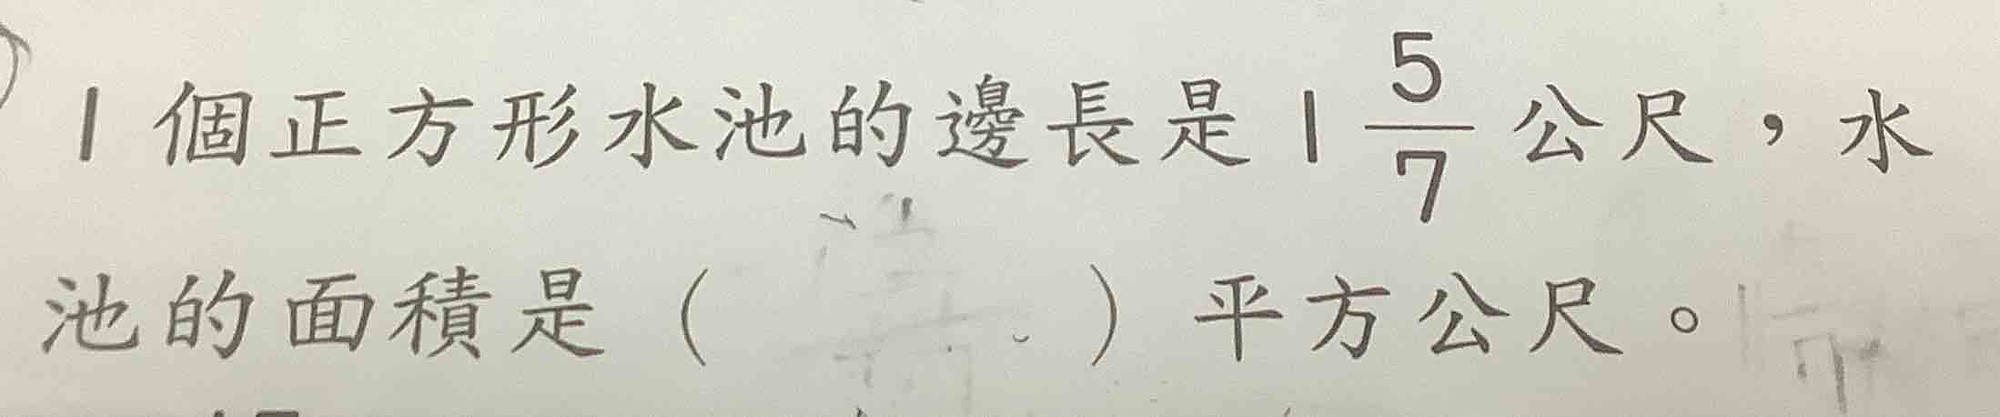 1個正方形水池的邊長是1 5/7 公尺，水
池的面積是（　　　）平方公尺。